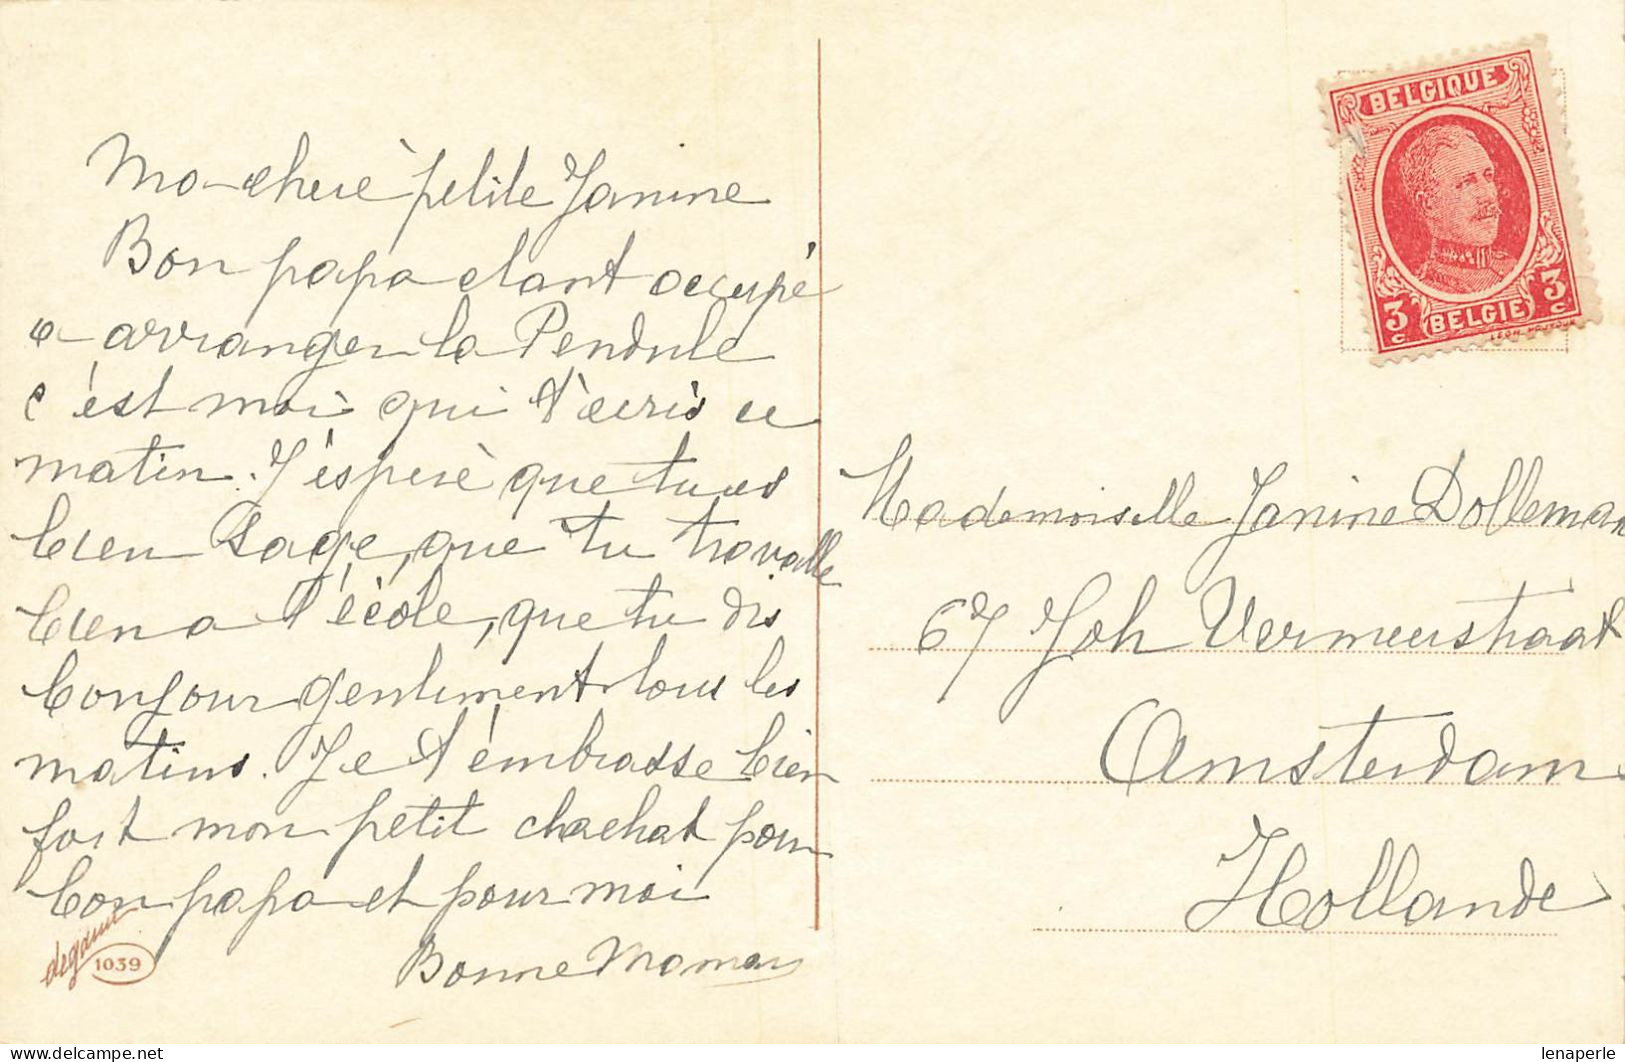 Ma chère petite Janine
Bon papa etant occupé
a arranger la Pendule
c'est moi qui t'écris ce
matin. J'éspère que tu es
bien Sage, que tu travalle
bien a l'école, que tu dis
bonjour gentiment tous les
matins. Je t'émbrasse bien
fort mon petit chachat pour
bon papa et pour moi
Bonne Maman
degami
1039
BELGIQUE
3 c BELGIE 3 c
Mademoiselle Janine Dolleman
67 Joh Vermeerstraat
Amsterdam
Hollande
lenaperle